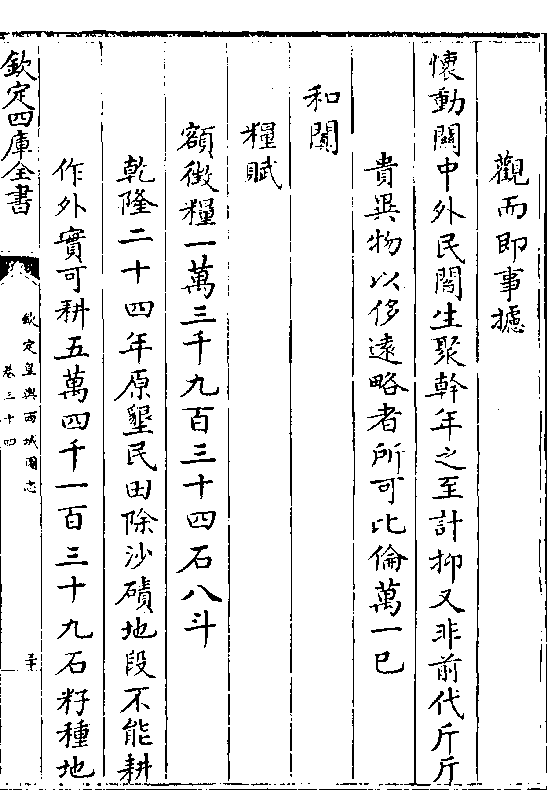 觀而即事攄
懷動關中外民間生聚幹年之至計抑又非前代斤斤
貴異物以侈遠略者所可比倫萬一已
和闐
糧賦
額徴糧一萬三千九百三十四石八斗
乾隆二十四年原墾民田除沙磧地段不能耕
作外實可耕五萬四千一百三十九石籽種地
欽定四庫全書
欽定皇輿西域圖志
卷三十四